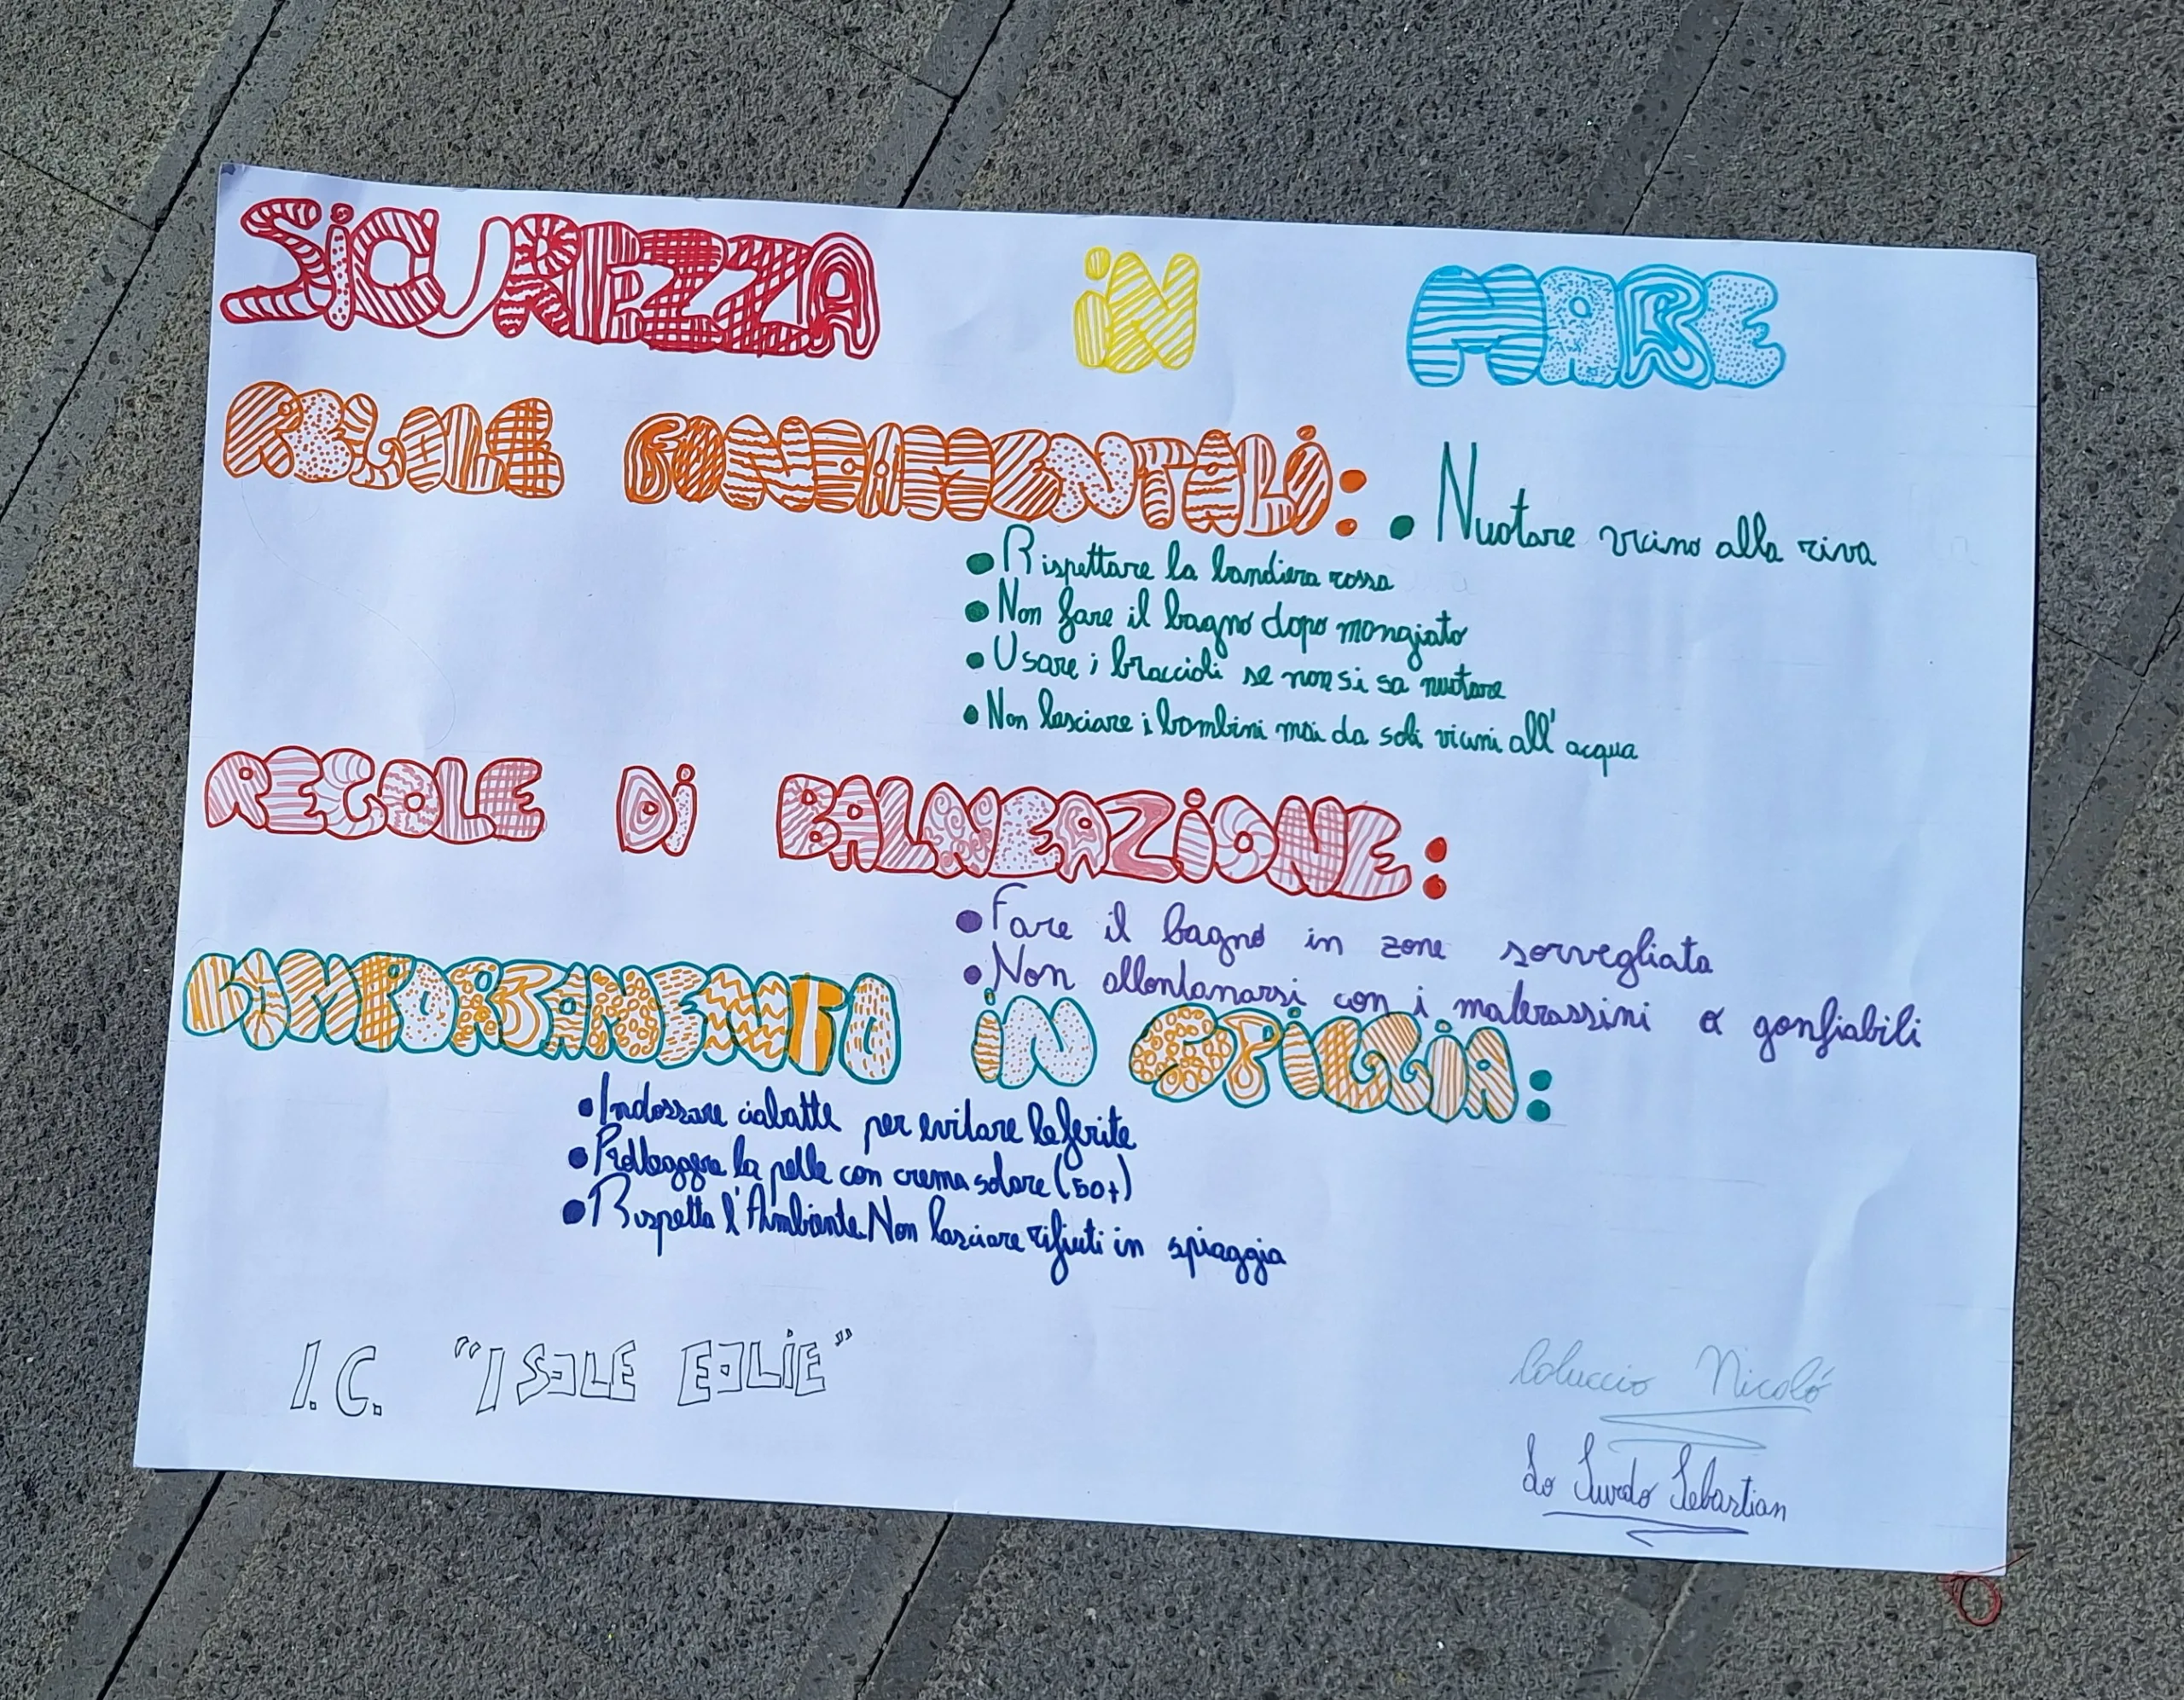 SiCUREZZA iN MARE
REGOLE FONDAMENTALi:
• Nuotare vicino alla riva
• Rispettare la bandiera rossa
• Non fare il bagno dopo mangiato
• Usare i braccioli se non si sa nuotare
• Non lasciare i bambini mai da soli vicini all'acqua
REGOLE Di BALNEAZiONE:
• Fare il bagno in zone sorvegliata
• Non allontanarsi con i materassini o gonfiabili
COMPORTAMENTO iN SPiGGiA:
• Indossare ciabatte per evitare le ferite
• Proteggere la pelle con crema solare (50+)
• Rispetta l'Ambiente. Non lasciare rifiuti in spiaggia
I.C. "ISOLE EOLiE"
Coluccio Nicoló
Lo Surdo Sebastian